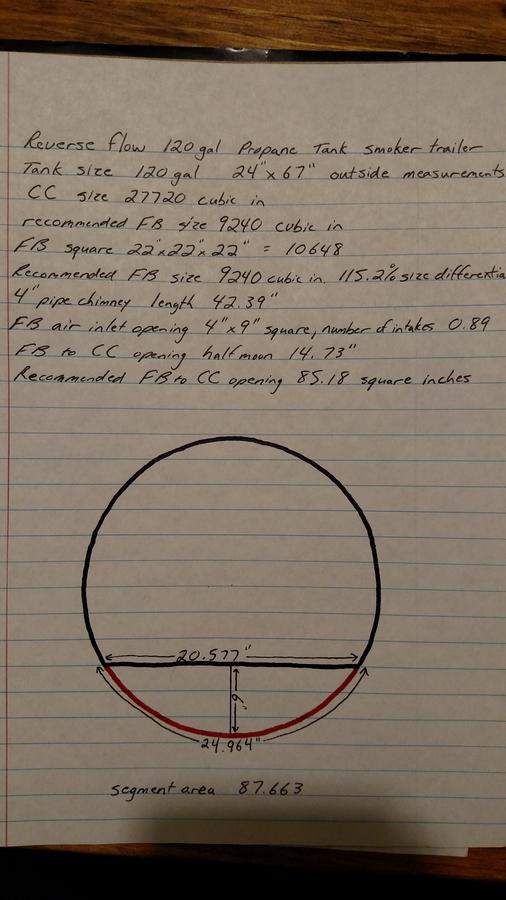 Reverse flow 120 gal Propane Tank smoker trailer
Tank size 120 gal 24" x 67" outside measurements
CC size 27720 cubic in
recommended FB size 9240 cubic in
FB square 22"x22"x22" = 10648
Recommended FB size 9240 cubic in. 115.2% size differentia
4" pipe chimney length 42.39"
FB air inlet opening 4"x9" square, number of intakes 0.89
FB to CC opening half moon 14.73"
Recommended FB to CC opening 85.18 square inches
20.577"
6"
24.964"
segment area 87.663